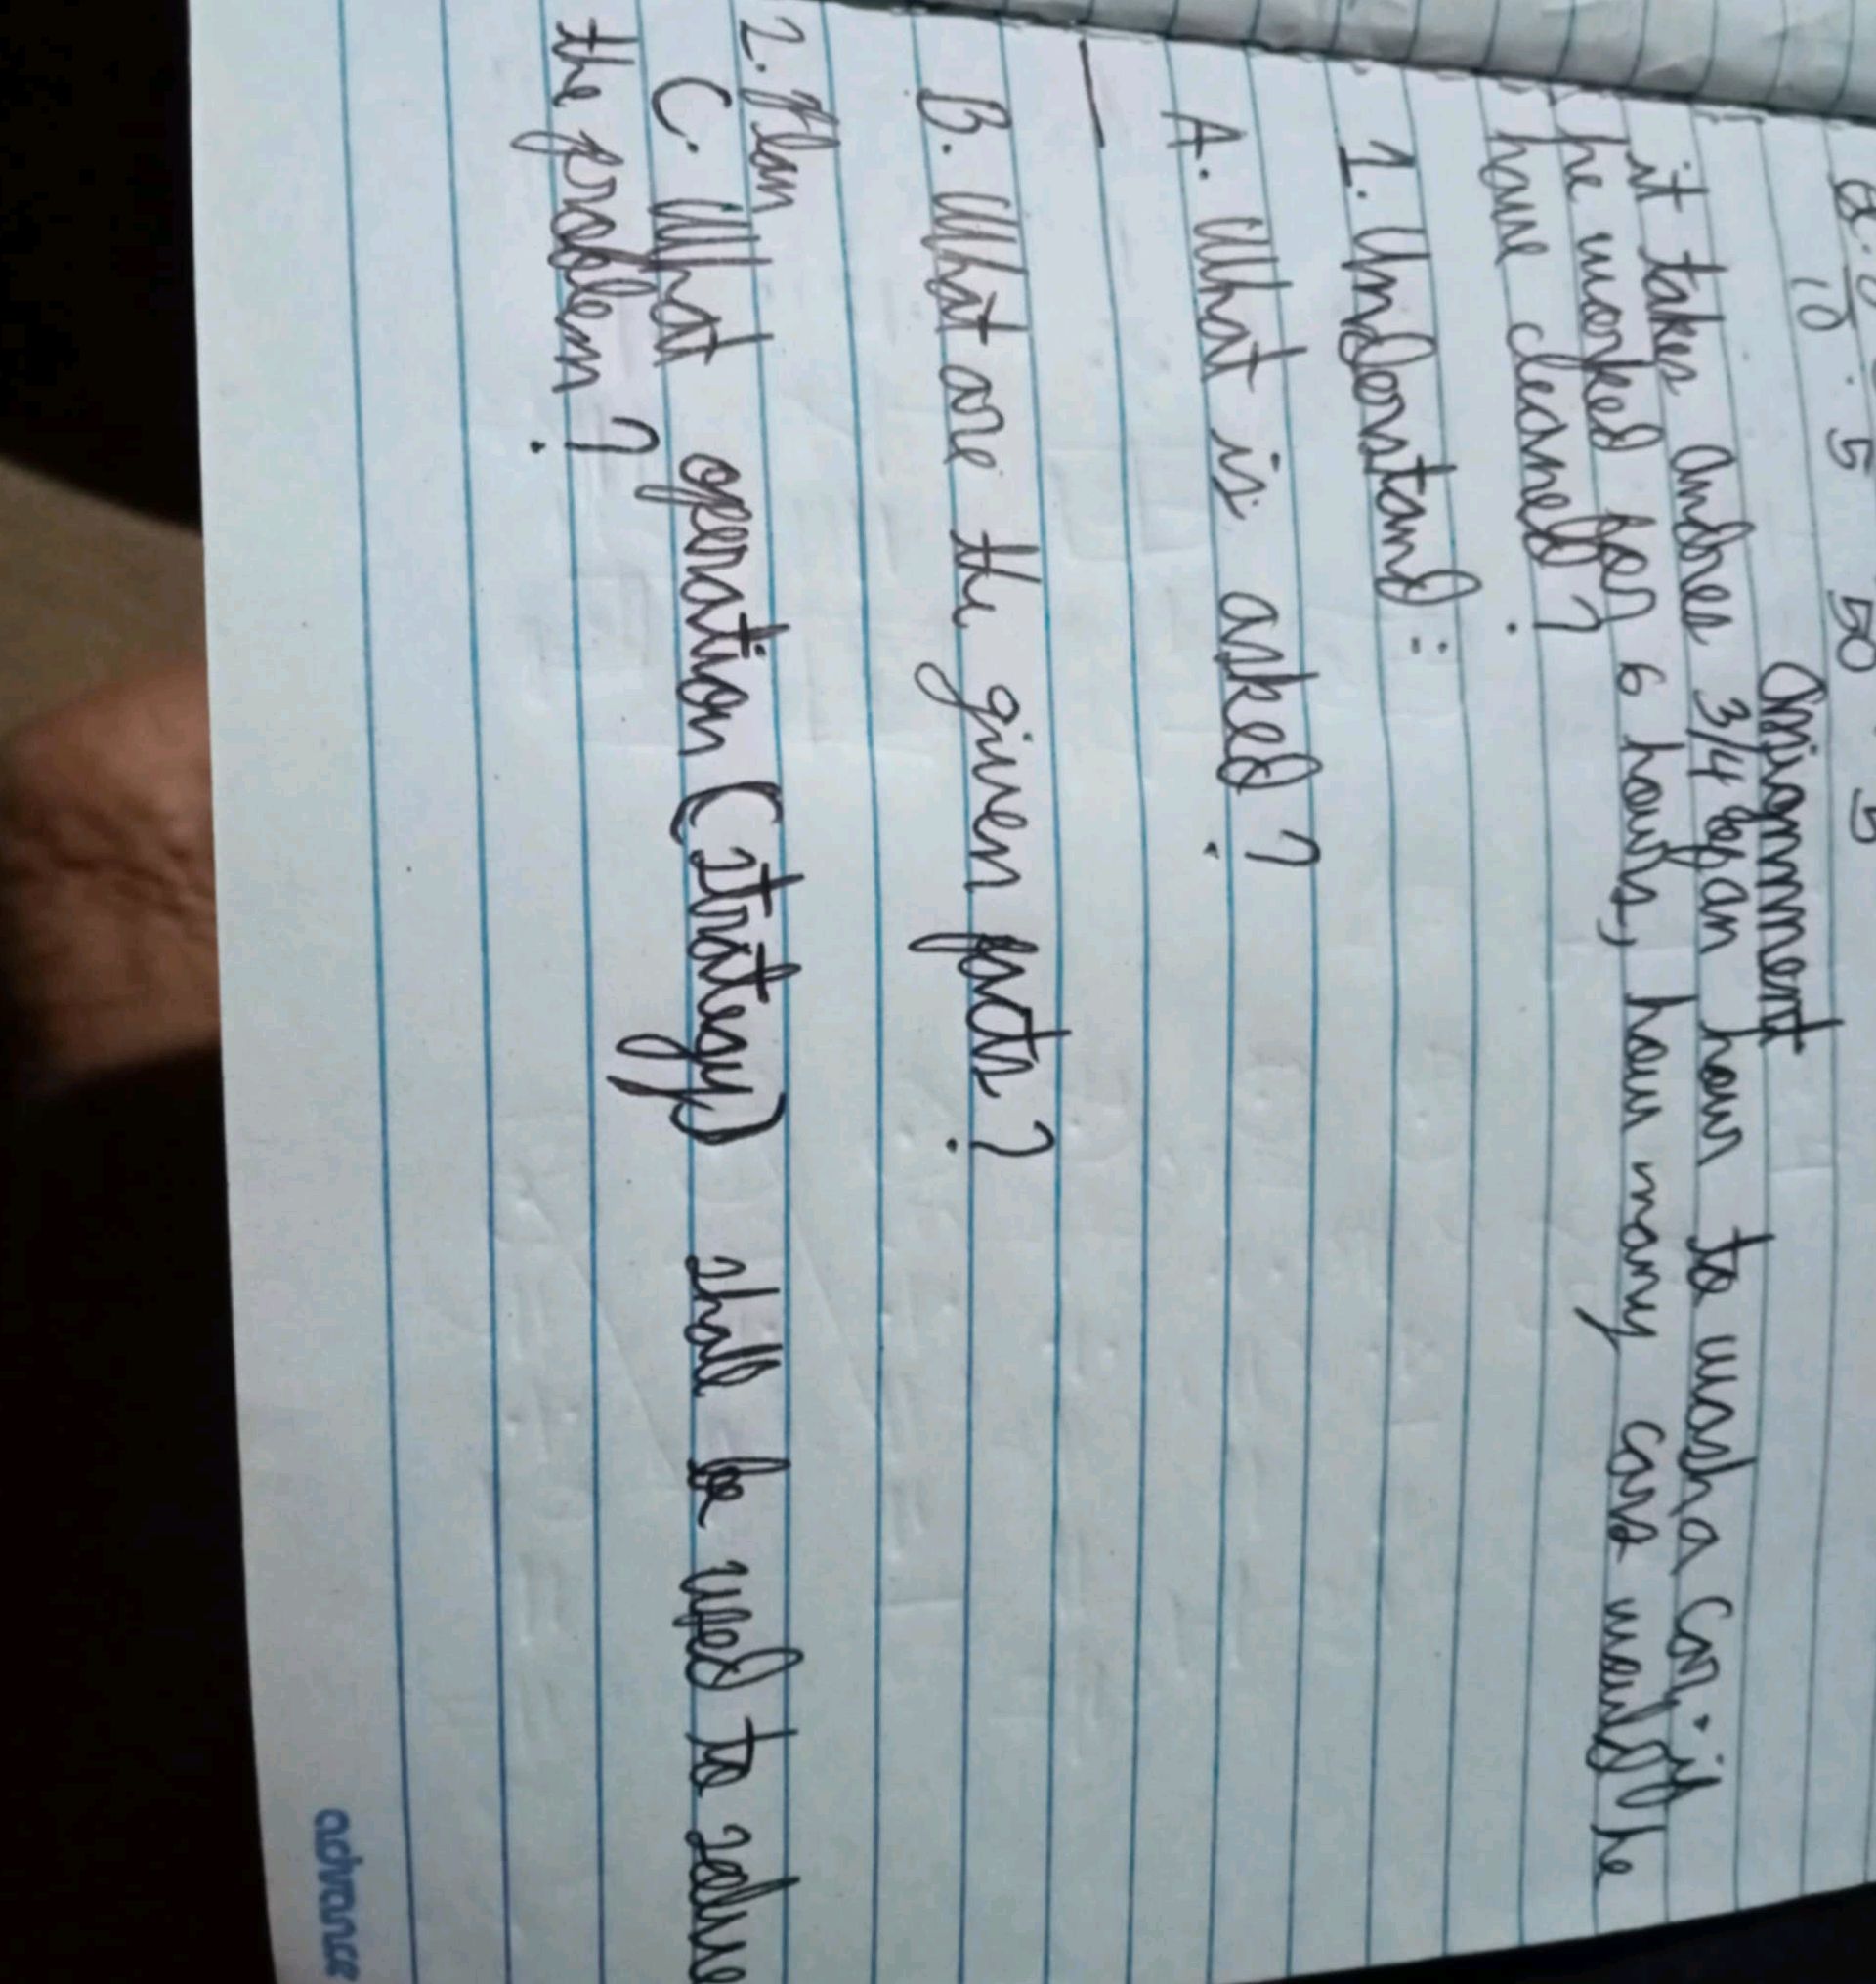 10 . 5 50 5
Assignment
it takes Andres 3/4 of an hour to wash a car. if
he worked for 6 hours, how many cars would he
have cleaned?
1. Understand:
A. What is asked?
B. What are the given facts?
2. Plan
C. What operation (strategy) shall be used to solve
the problem?
advance